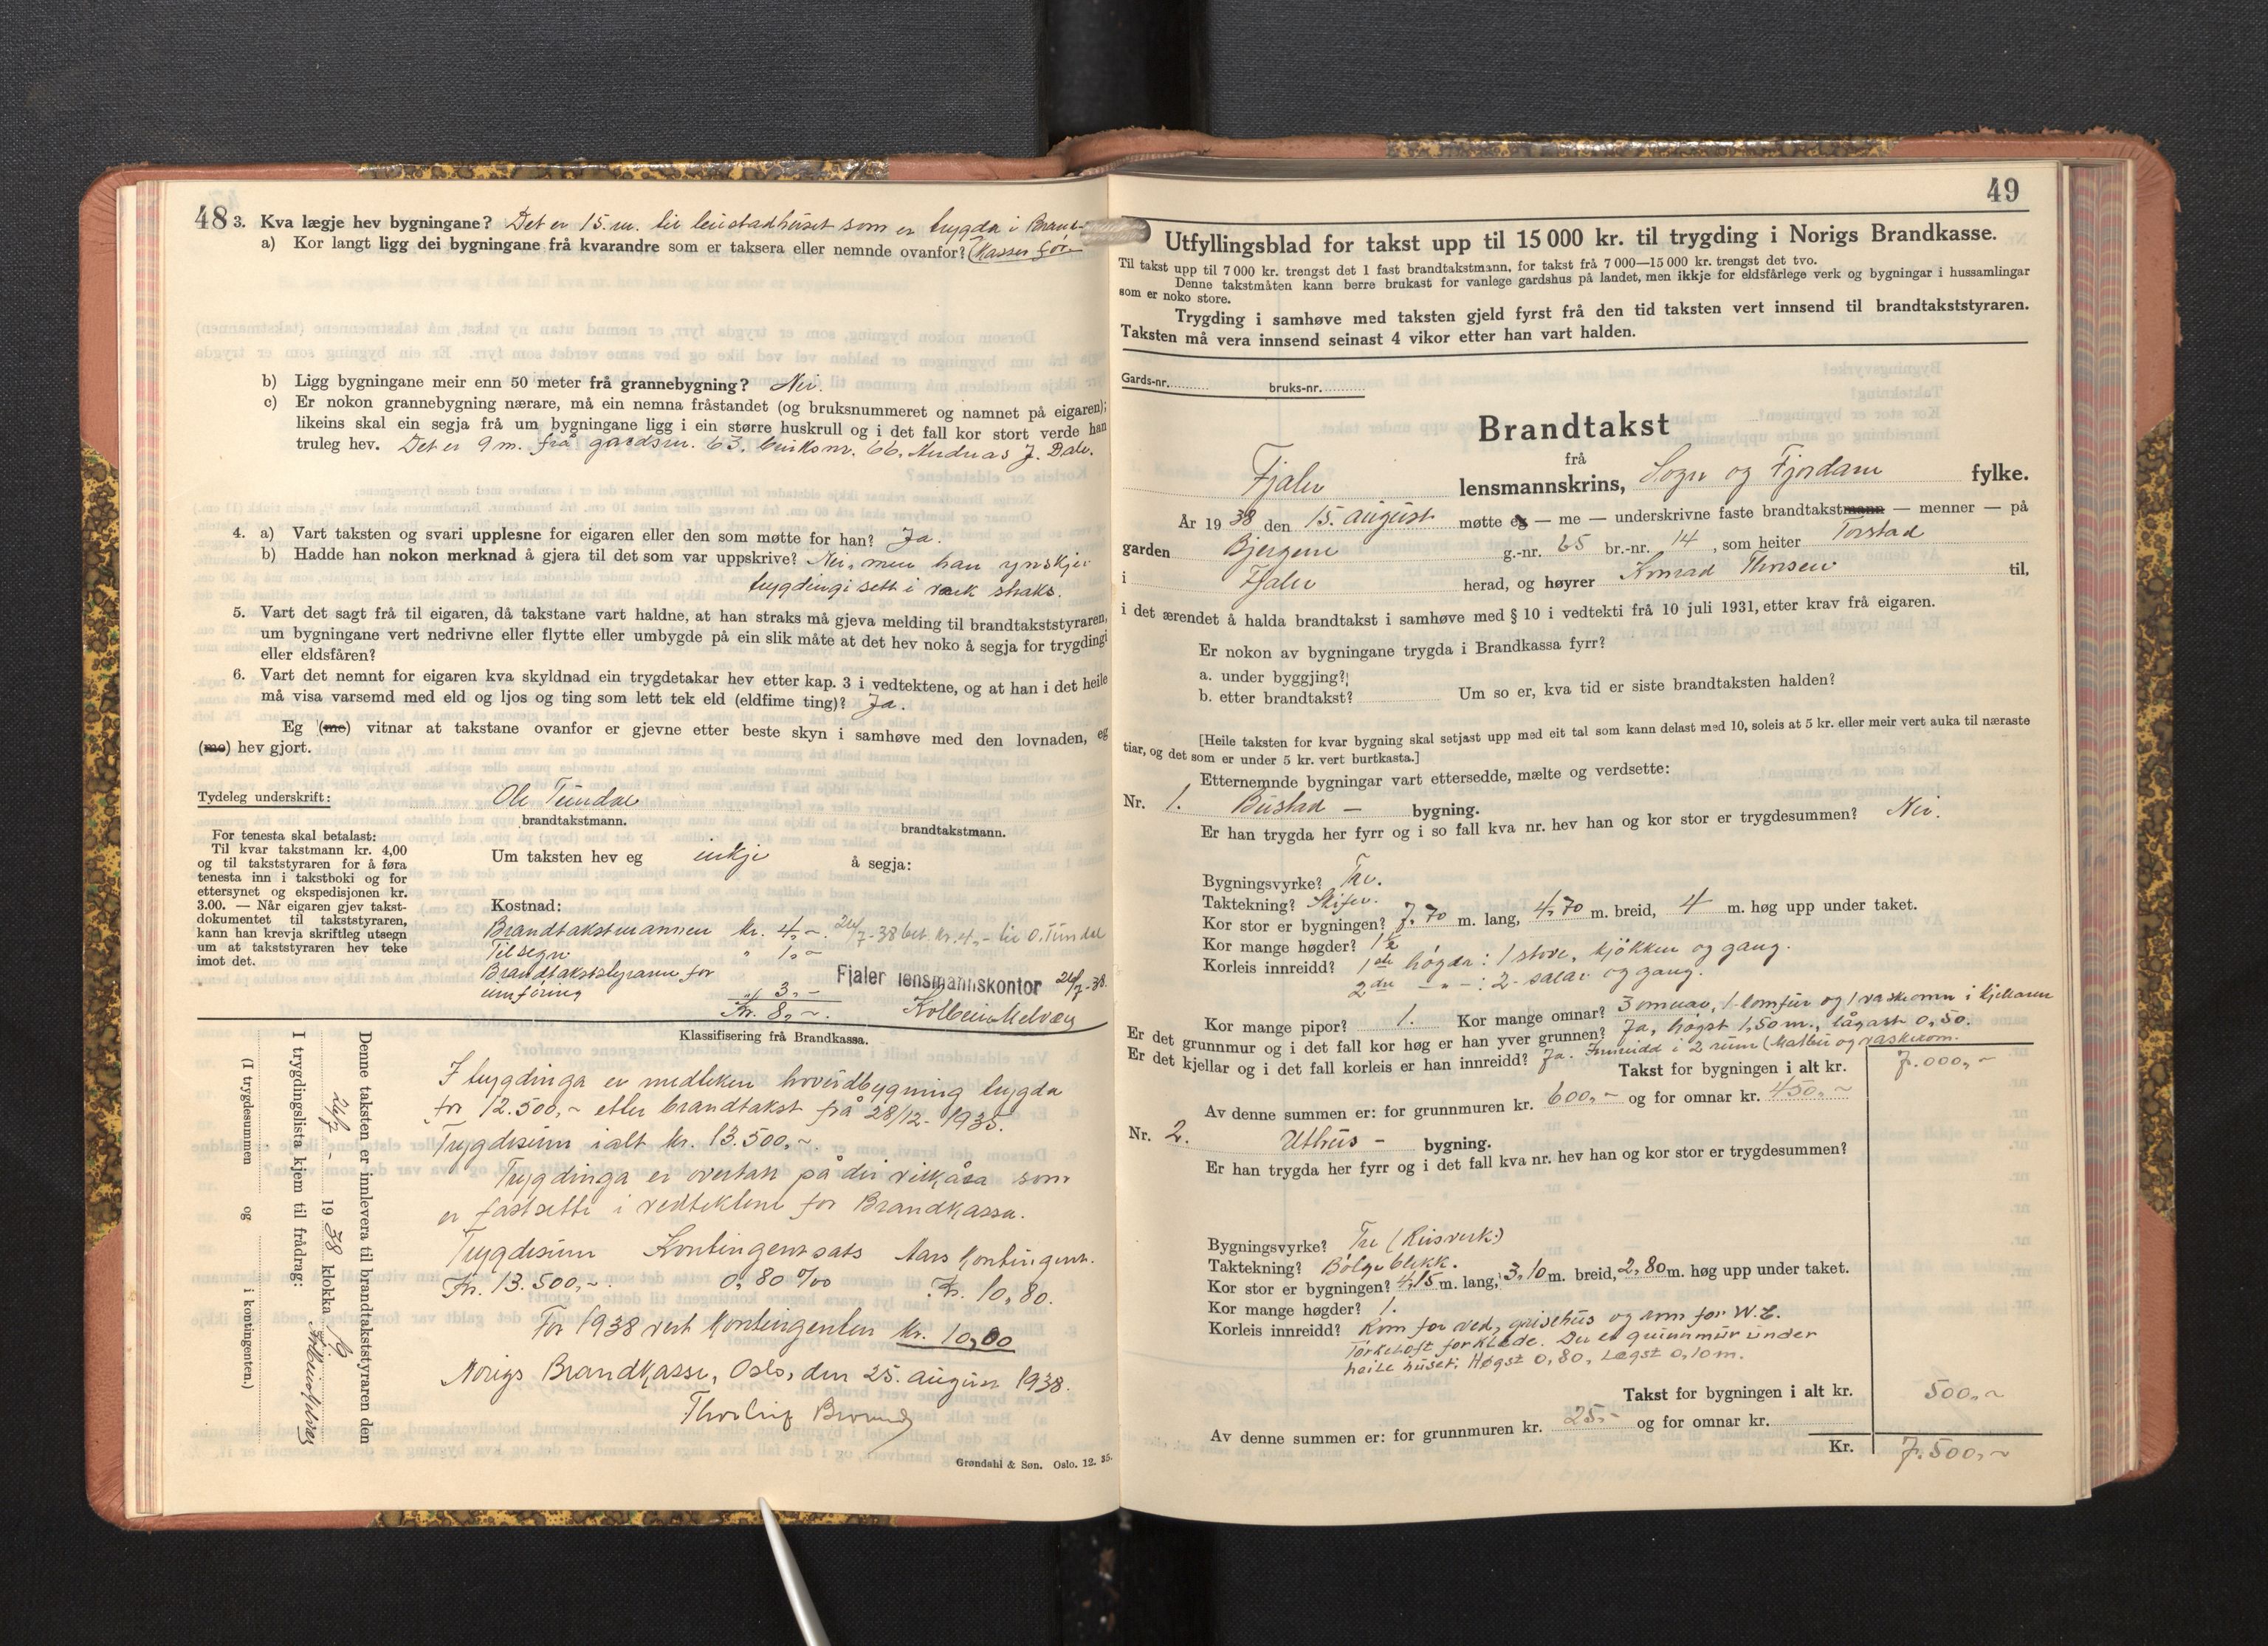 48
3. Kva lægje hev bygningane? Det er 15. m. til bustadhuset som er trygda i Brand-
a) Kor langt ligg dei bygningane frå kvarandre som er taksera eller nemnde ovanfor? (Kassen før
b) Ligg bygningane meir enn 50 meter frå grannebygning? Nei.
c) Er nokon grannebygning nærare, må ein nemna fråstandet (og bruksnummeret og namnet på eigaren);
likeins skal ein segja frå um bygningane ligg i ein større huskrull og i det fall kor stort verde han
truleg hev. Det er 9 m. frå gardsnr. 63, bruksnr. 66, Andreas J. Dale.
4. a) Vart taksten og svari upplesne for eigaren eller den som møtte for han? Ja.
b) Hadde han nokon merknad å gjera til det som var uppskrive? Nei, men han ynskjer
trygdingi sett i verk straks.
5. Vart det sagt frå til eigaren, då takstane vart haldne, at han straks må gjeva melding til brandtakststyraren,
um bygningane vert nedrivne eller flytte eller umbygde på ein slik måte at det hev noko å segja for trygdingi
eller eldsfåren?
6. Vart det nemnt for eigaren kva skyldnad ein trygdetakar hev etter kap. 3 i vedtektene, og at han i det heile
må visa varsemd med eld og ljos og ting som lett tek eld (eldfime ting)? Ja.
Eg (me) vitnar at takstane ovanfor er gjevne etter beste skyn i samhøve med den lovnaden, eg
(me) hev gjort.
Tydeleg underskrift: Ole Tundal
brandtakstmann. brandtakstmann.
For tenesta skal betalast:
Til kvar takstmann kr. 4,00
og til takststyraren for å føra
tenesta inn i takstboki og for
ettersynet og ekspedisjonen kr.
3.00. — Når eigaren gjev takst-
dokumentet til takststyraren,
kann han krevja skriftleg utsegn
um at takststyraren hev teke
imot det.
Um taksten hev eg inkje å segja:
Kostnad:
Brandtakstmannen kr. 4,- 26/7-38 bet. kr. 4,- til O. Tundal
Tilsegn " 1,-
Brandtakststyraren for
innføring " 3,-
Kr. 8,-.
Fjaler lensmannskontor 26/7-38.
Denne taksten er innlevera til brandtakststyraren den
26/7 - 1938 klokka 9
I trygdingslista kjem til frådrag:
(I trygdesummen og i kontingenten.)
Klassifisering frå Brandkassa.
I trygdinga er medteken hovudbygning trygda
for 12.500,- etter brandtakst frå 28/12-1935.
Trygdesum ialt kr. 13.500,-
Trygdinga er overtatt på dei vilkåra som
er fastsette i vedtektene for Brandkassa.
Trygdesum Kontingentsats Aars kontingent.
Kr. 13.500,- 0,80 ‰ Kr. 10,80.
For 1938 vert kontingenten kr. 10,00
Norigs Brandkasse, Oslo, den 25. august 1938.
Grøndahl & Søn. Oslo. 12. 35.
49
Utfyllingsblad for takst upp til 15 000 kr. til trygding i Norigs Brandkasse.
Til takst upp til 7 000 kr. trengst det 1 fast brandtakstmann, for takst frå 7 000—15 000 kr. trengst det tvo.
Denne takstmåten kann berre brukast for vanlege gardshus på landet, men ikkje for eldsfårlege verk og bygningar i hussamlingar
som er noko store.
Trygding i samhøve med taksten gjeld fyrst frå den tid taksten vert innsend til brandtakststyraren.
Taksten må vera innsend seinast 4 vikor etter han vart halden.
Gards-nr. bruks-nr.
Brandtakst
frå
Fjaler lensmannskrins, Sogn og Fjordane fylke.
År 1938 den 15. august møtte eg — me — underskrivne faste brandtakstmann — menner — på
garden Bjergene g.-nr. 65 br.-nr. 14, som heiter Torstad
i Fjaler herad, og høyrer Konrad Thorsen til,
i det ærendet å halda brandtakst i samhøve med § 10 i vedtekti frå 10 juli 1931, etter krav frå eigaren.
Er nokon av bygningane trygda i Brandkassa fyrr?
a. under byggjing?
b. etter brandtakst? Um so er, kva tid er siste brandtaksten halden?
[Heile taksten for kvar bygning skal setjast upp med eit tal som kann delast med 10, soleis at 5 kr. eller meir vert auka til næraste
tiar, og det som er under 5 kr. vert burtkasta.]
Etternemnde bygningar vart ettersedde, mælte og verdsette:
Nr. 1. Bustad - bygning.
Er han trygda her fyrr og i so fall kva nr. hev han og kor stor er trygdesummen? Nei.
Bygningsvyrke? Tre.
Taktekning? Skifer.
Kor stor er bygningen? 7,70 m. lang, 4,70 m. breid, 4 m. høg upp under taket.
Kor mange høgder? 1½
Korleis innreidd? 1ste høgda: 1 stove, kjøkken og gang.
2dre - " - : 2 salar og gang.
Kor mange pipor? 1. Kor mange omnar? 3 omnar, 1 komfur og 1 vaskeomn i kjellaren
Er det grunnmur og i det fall kor høg er han yver grunnen? Ja, høgst 1,50 m., lågast 0,50.
Er det kjellar og i det fall korleis er han innreidd? Ja. Innreidd i 2 rum (Matbu og vaskerom.
Takst for bygningen i alt kr. 7.000,-
Av denne summen er: for grunnmuren kr. 600,- og for omnar kr. 450,-
Nr. 2. Uthus - bygning.
Er han trygda her fyrr og i det fall kva nr. hev han og kor stor er trygdesummen?
Bygningsvyrke? Tre (Reisverk)
Taktekning? Bølgeblekk.
Kor stor er bygningen? 4,15 m. lang, 3,10 m. breid, 2,80 m. høg upp under taket.
Kor mange høgder? 1.
Korleis innreidd? Rom for ved, grisehus og rom for W.C.
Tørkeloft for klede. Der er grunnmur under
heile huset. Høgst 0,80, Lægst 0,10 m.
Takst for bygningen i alt kr. 500,-
Av denne summen er: for grunnmuren kr. 25,- og for omnar kr.
Kr. 7.500,-